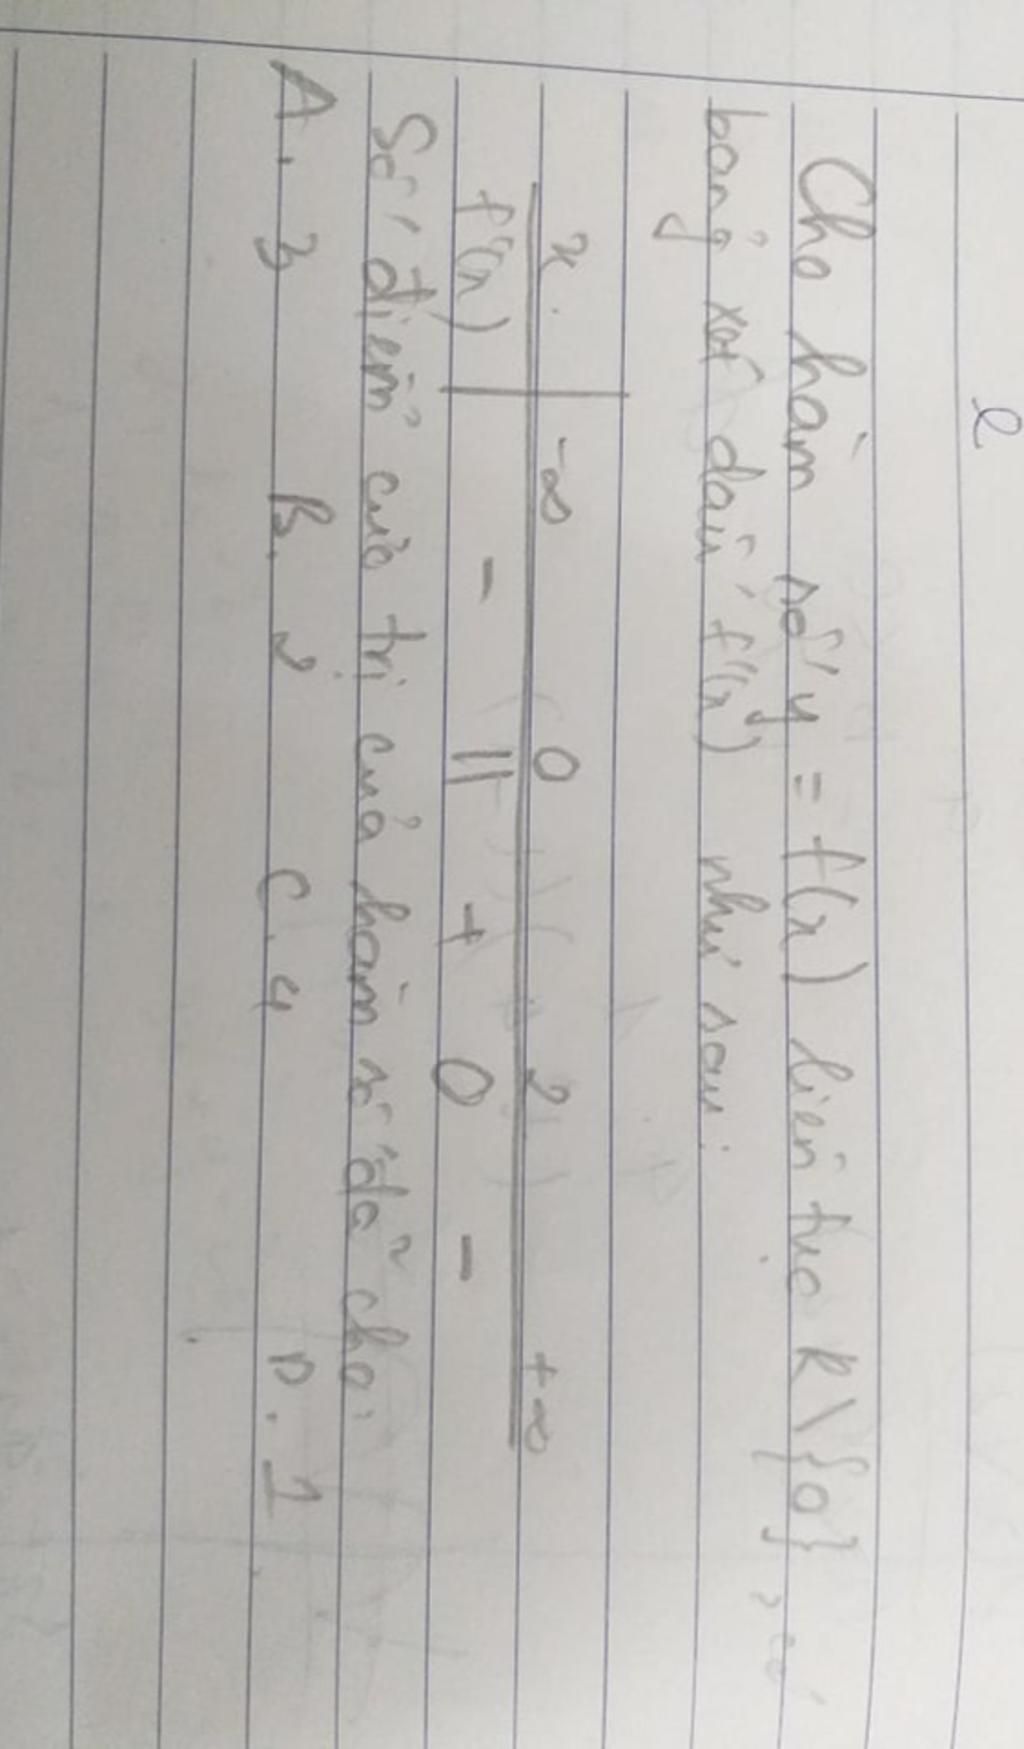 2
Cho hàm số y = f(x) liên tục R \ {0}, có
bảng xét dấu f'(x) như sau:
x -∞ 0 2 +∞
f'(x) - || + 0 -
Số điểm cực trị của hàm số đã cho:
A. 3 B. 2 C. 4 D. 1